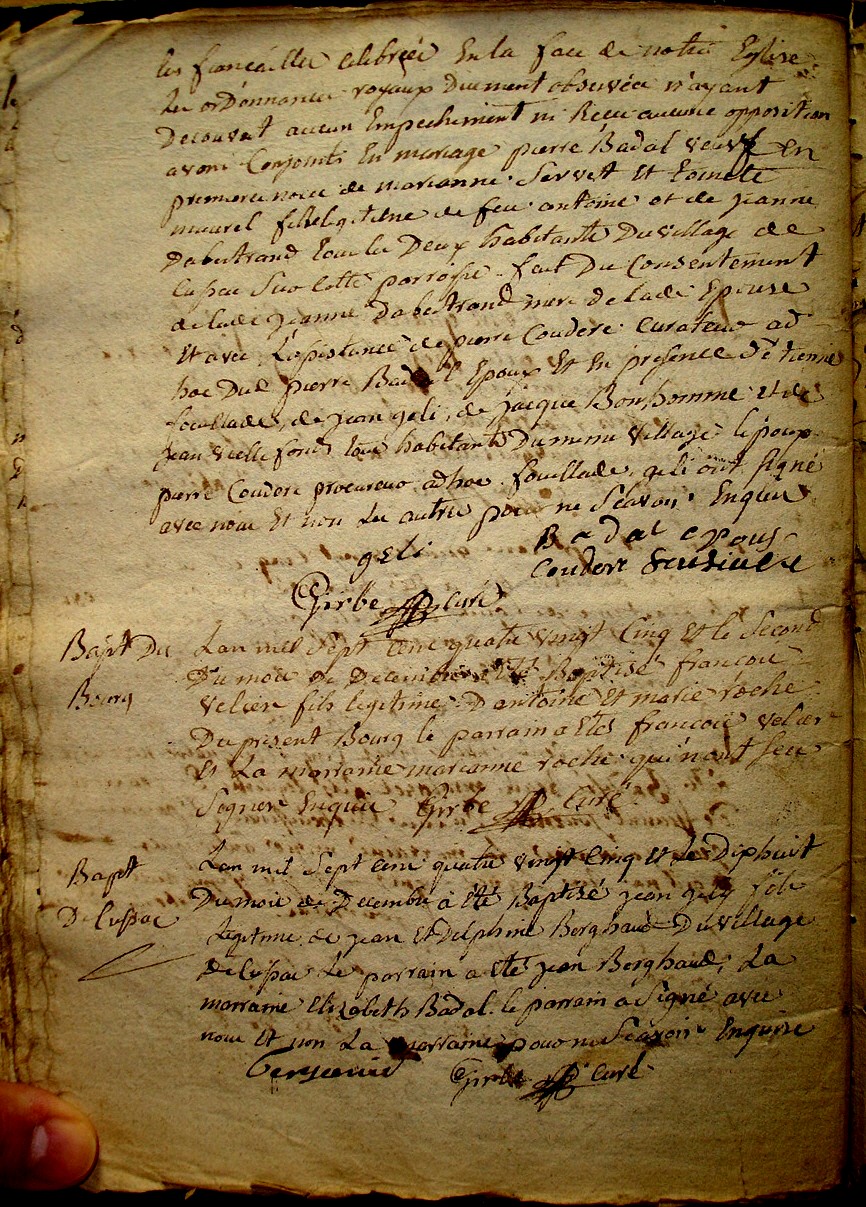 les fiancailles celebrées En la face de notre Eglise
les ordonnances royaux Duement observées n'ayant
Decouvert aucun Empechement ni Receu aucune opposition
avons Conjoints En mariage pierre Badal veuf En
premieres noces de marianne Servett Et toinete
maurel fille legitime de feu antoine et de jeanne
Dabertrand tous les Deux habitants Du village de
lupac Sur cette parroisse fait Du Consentement
de lade jeanne Dabertrand mere de lade Epouse
Et avec L'assistance de pierre Couderc Curateur ad
hoc Dud pierre Badal Epoux Et En presence d'étienne
fouillade, de jean geli, de jacque Bonhomme et de
jean vielle fons tous habitants Du meme village lepoux
pierre Couderc procureur adhoc fouillade, geli ont signé
avec nous Et non les autres pour ne Scavoir Enquis
geli Badal epous
Couderc
Girbe Curé
Bapt Du
Bourg
Lan mil Sept cent quatre vingt Cinq Et le Second
Du mois de Decembre a Eté Baptisé françois
velier fils legitime D'antoine Et marie roche
Du present Bourg le parrain a Eté françois velier
Et La marraine marianne roche qui n'ont Seu
Signer Enquis Girbe Curé
Bapt
De lupac
Lan mil Sept cent quatre vingt Cinq Et Le Dixhuit
Du mois de Decembre a Eté Baptisé jean gely fils
legitime de jean Et Delphine Borghaud Du village
de lupac Le parrain a Eté jean Borghaud, La
marraine Elizabeth Badal le parrain a Signé avec
nous Et non La marraine pour ne Scavoir Enquise
Girbe Curé